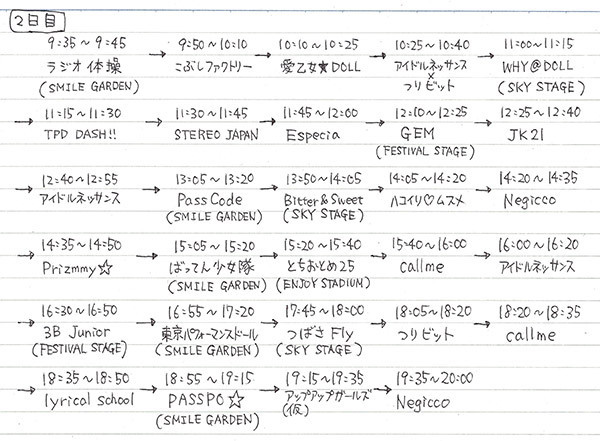 2日目
9:35～9:45 → 9:50～10:10 → 10:10～10:25 → 10:25～10:40 → 11:00～11:15
ラジオ体操 こぶしファクトリー 愛乙女★DOLL アイドルネッサンス × つりビット WHY@DOLL
(SMILE GARDEN) (SKY STAGE)
→ 11:15～11:30 → 11:30～11:45 → 11:45～12:00 → 12:10～12:25 → 12:25～12:40
TPD DASH!! STEREO JAPAN Especia GEM JK21
(FESTIVAL STAGE)
→ 12:40～12:55 → 13:05～13:20 → 13:50～14:05 → 14:05～14:20 → 14:20～14:35
アイドルネッサンス PassCode Bitter & Sweet ハコイリ♡ムスメ Negicco
(SMILE GARDEN) (SKY STAGE)
→ 14:35～14:50 → 15:05～15:20 → 15:20～15:40 → 15:40～16:00 → 16:00～16:20
Prizmmy☆ ばってん少女隊 とちおとめ25 callme アイドルネッサンス
(SMILE GARDEN) (ENJOY STADIUM)
→ 16:30～16:50 → 16:55～17:20 → 17:45～18:00 → 18:05～18:20 → 18:20～18:35
3B Junior 東京パフォーマンスドール つばさFly つりビット callme
(FESTIVAL STAGE) (SMILE GARDEN) (SKY STAGE)
→ 18:35～18:50 → 18:55～19:15 → 19:15～19:35 → 19:35～20:00
lyrical school PASSPO☆ アップアップガールズ(仮) Negicco
(SMILE GARDEN)